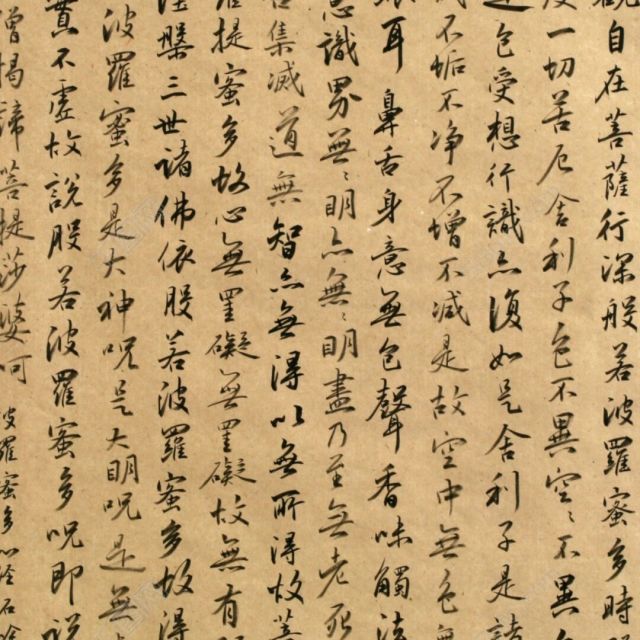 觀自在菩薩行深般若波羅蜜多時
度一切苦厄舍利子色不異空〻不異
是色受想行識亦復如是舍利子是諸
滅不垢不净不增不减是故空中無色無
眼耳鼻舌身意無色聲香味觸法
意識界無〻明亦無〻明盡乃至無老死
苦集滅道無智亦無得以無所得故菩
菩提蜜多故心無罣礙無罣礙故無有
涅槃三世諸佛依般若波羅蜜多故得
波羅蜜多是大神呪是大明呪是無
實不虛故說般若波羅蜜多呪即說
僧揭諦菩提莎婆呵
波羅蜜多心經